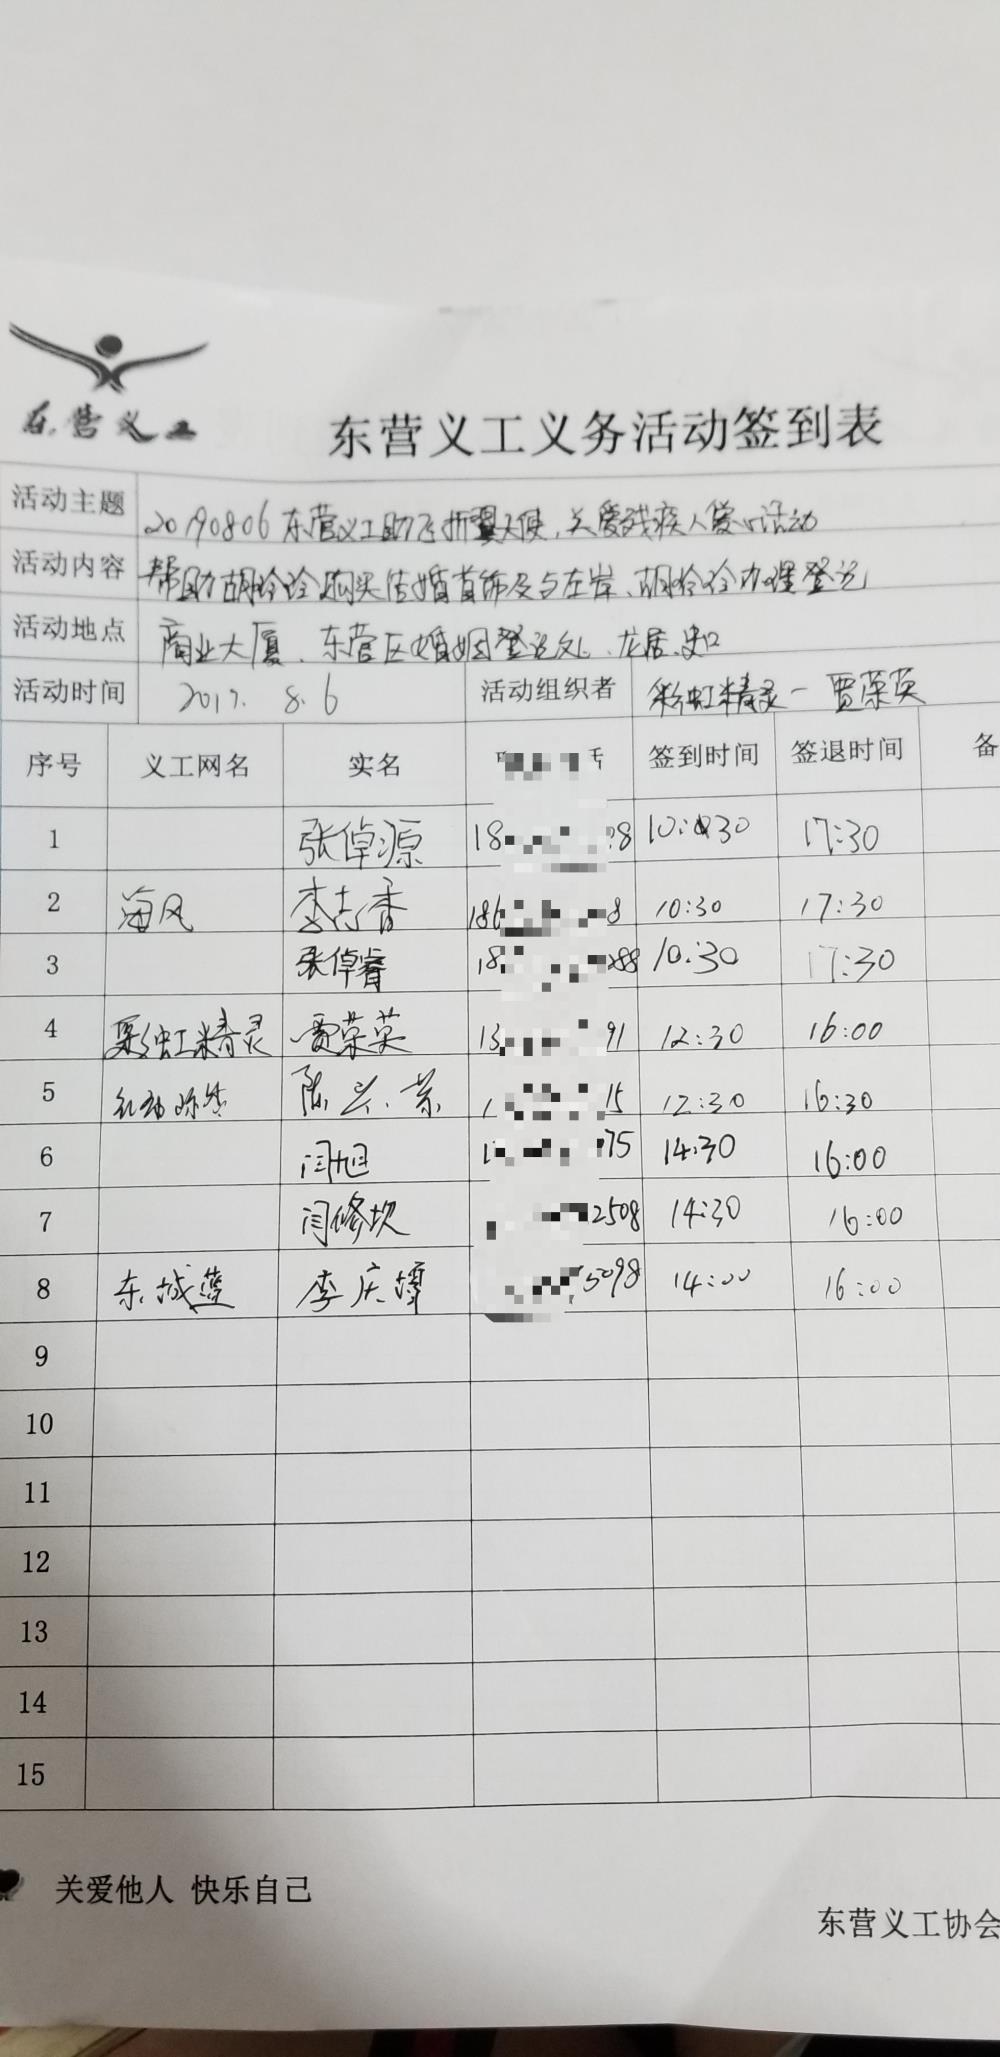 东营义工
东营义工义务活动签到表
活动主题 20190806东营义工助飞折翼天使,关爱残疾人爱心活动
活动内容 帮助胡玲玲购买结婚首饰及与左岸、胡玲玲办理登记
活动地点 商业大厦、东营区婚姻登记处、龙居
活动时间 2019. 8. 6 活动组织者 彩虹精灵-贾荣英
序号 义工网名 实名 签到时间 签退时间 备
1 张倬源 18 8 10:30 17:30
2 海风 李志香 186 8 10:30 17:30
3 张倬睿 18 88 10:30 17:30
4 彩虹精灵 贾荣英 13 91 12:30 16:00
5 陈兰荣 1 15 12:30 16:30
6 闫旭 1 75 14:30 16:00
7 闫修坎 2508 14:30 16:00
8 东城蓝 李庆 5098 14:00 16:00
9
10
11
12
13
14
15
关爱他人 快乐自己
东营义工协会